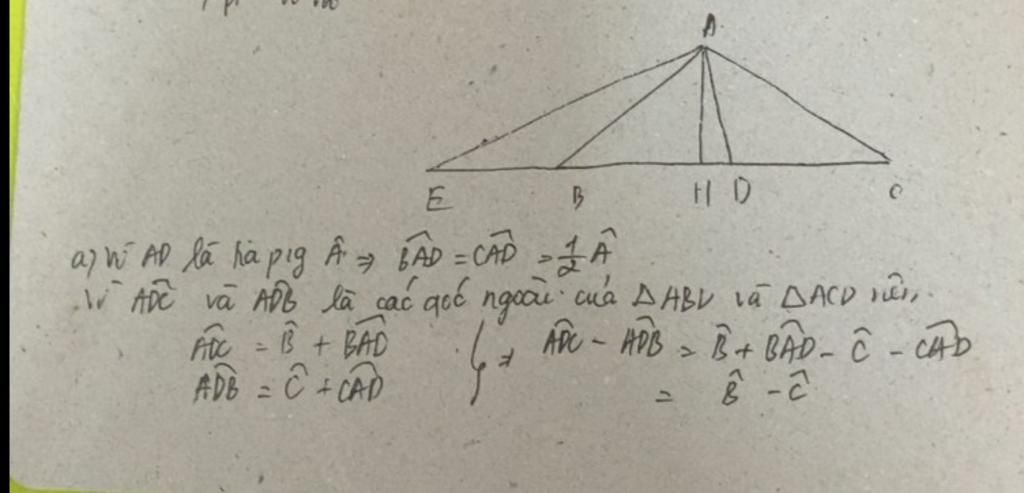 A
E B H D C
a) Vì AD là tia p/g Â ⇒ \widehat{BAD} = \widehat{CAD} = \frac{1}{2} Â
Vì \widehat{ADC} và \widehat{ADB} là các góc ngoài của ΔABD và ΔACD nên
\widehat{ADC} = \hat{B} + \widehat{BAD} } ⇒ \widehat{ADC} - \widehat{ADB} = \hat{B} + \widehat{BAD} - \hat{C} - \widehat{CAD}
\widehat{ADB} = \hat{C} + \widehat{CAD} = \hat{B} - \hat{C}